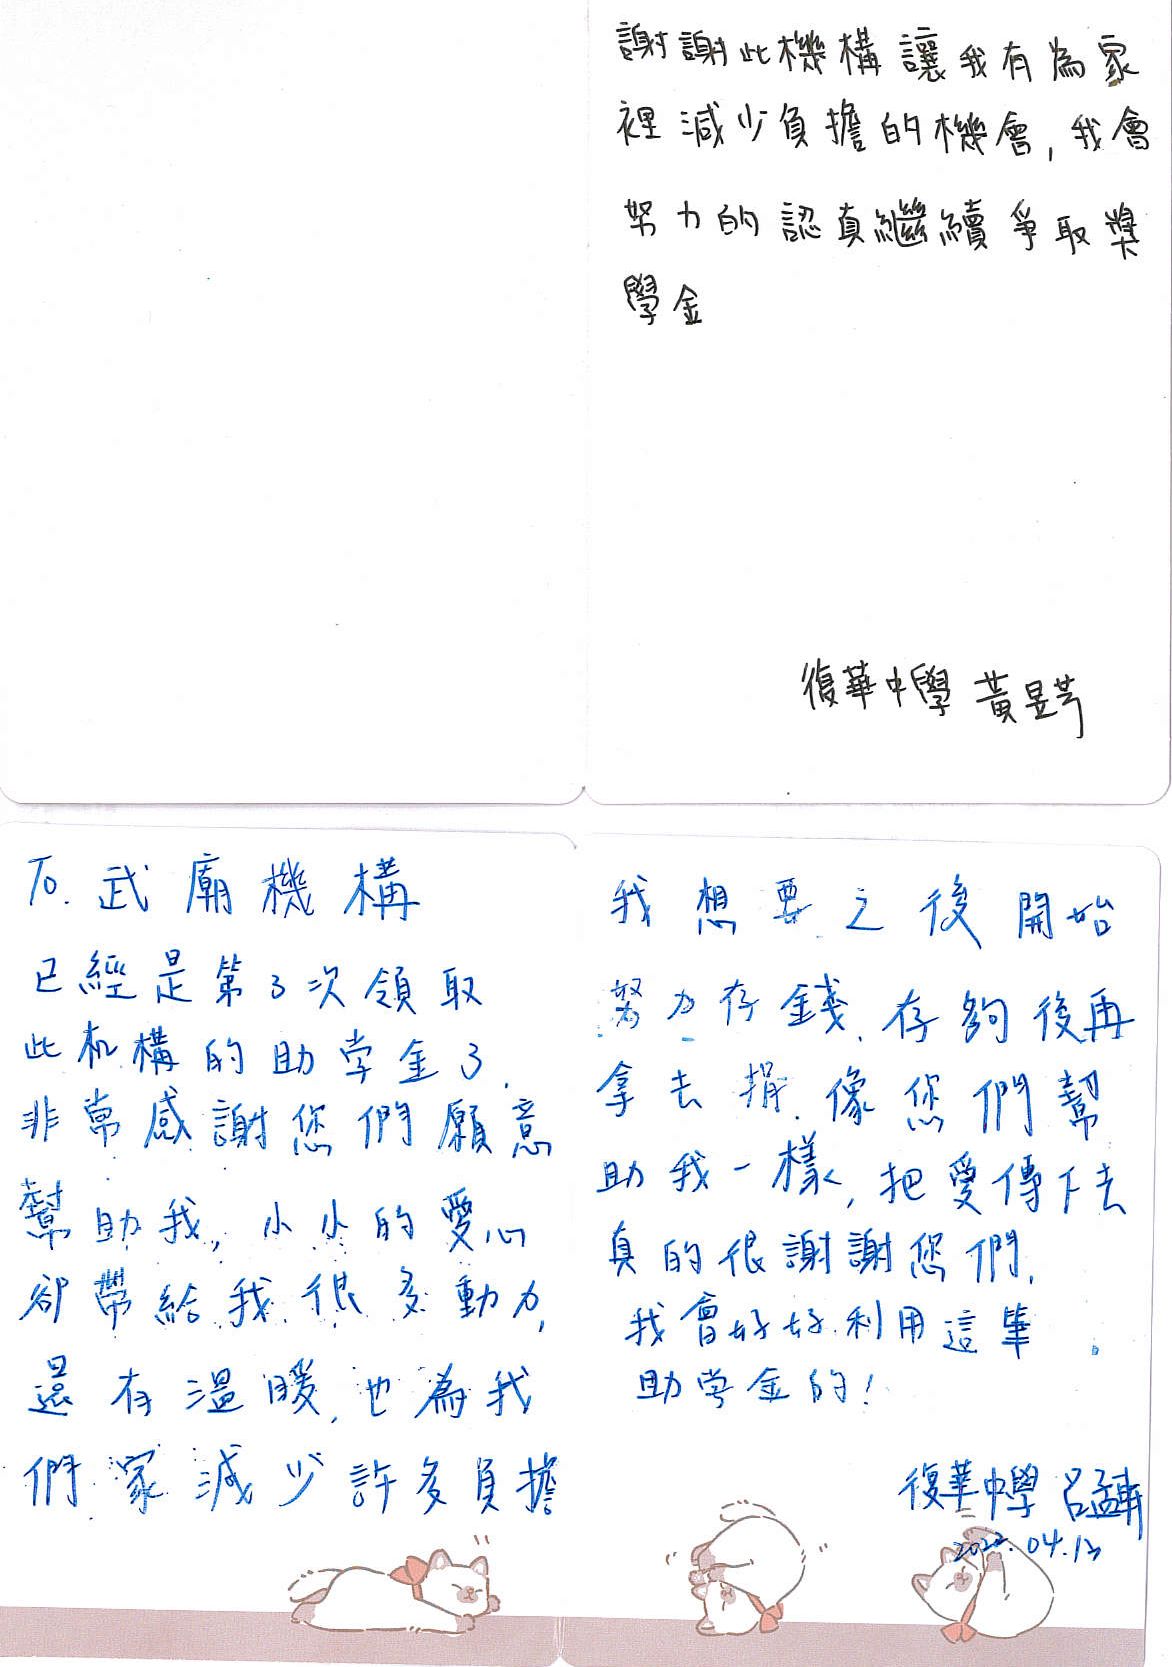 謝謝此機構讓我有為家
裡減少負擔的機會,我會
努力的認真繼續爭取獎
學金
復華中學 黃昱芩
To. 武廟機構
已經是第3次領取
此机構的助学金了,
非常感謝您們願意
幫助我,小小的愛心
卻帶給我很多動力,
還有溫暖,也為我
們家減少許多負擔
我想要之後開始
努力存錢,存夠後再
拿去捐,像您們幫
助我一樣,把愛傳下去
真的很謝謝您們,
我會好好利用這筆
助学金的!
復華中學 呂孟軒
2022.04.13